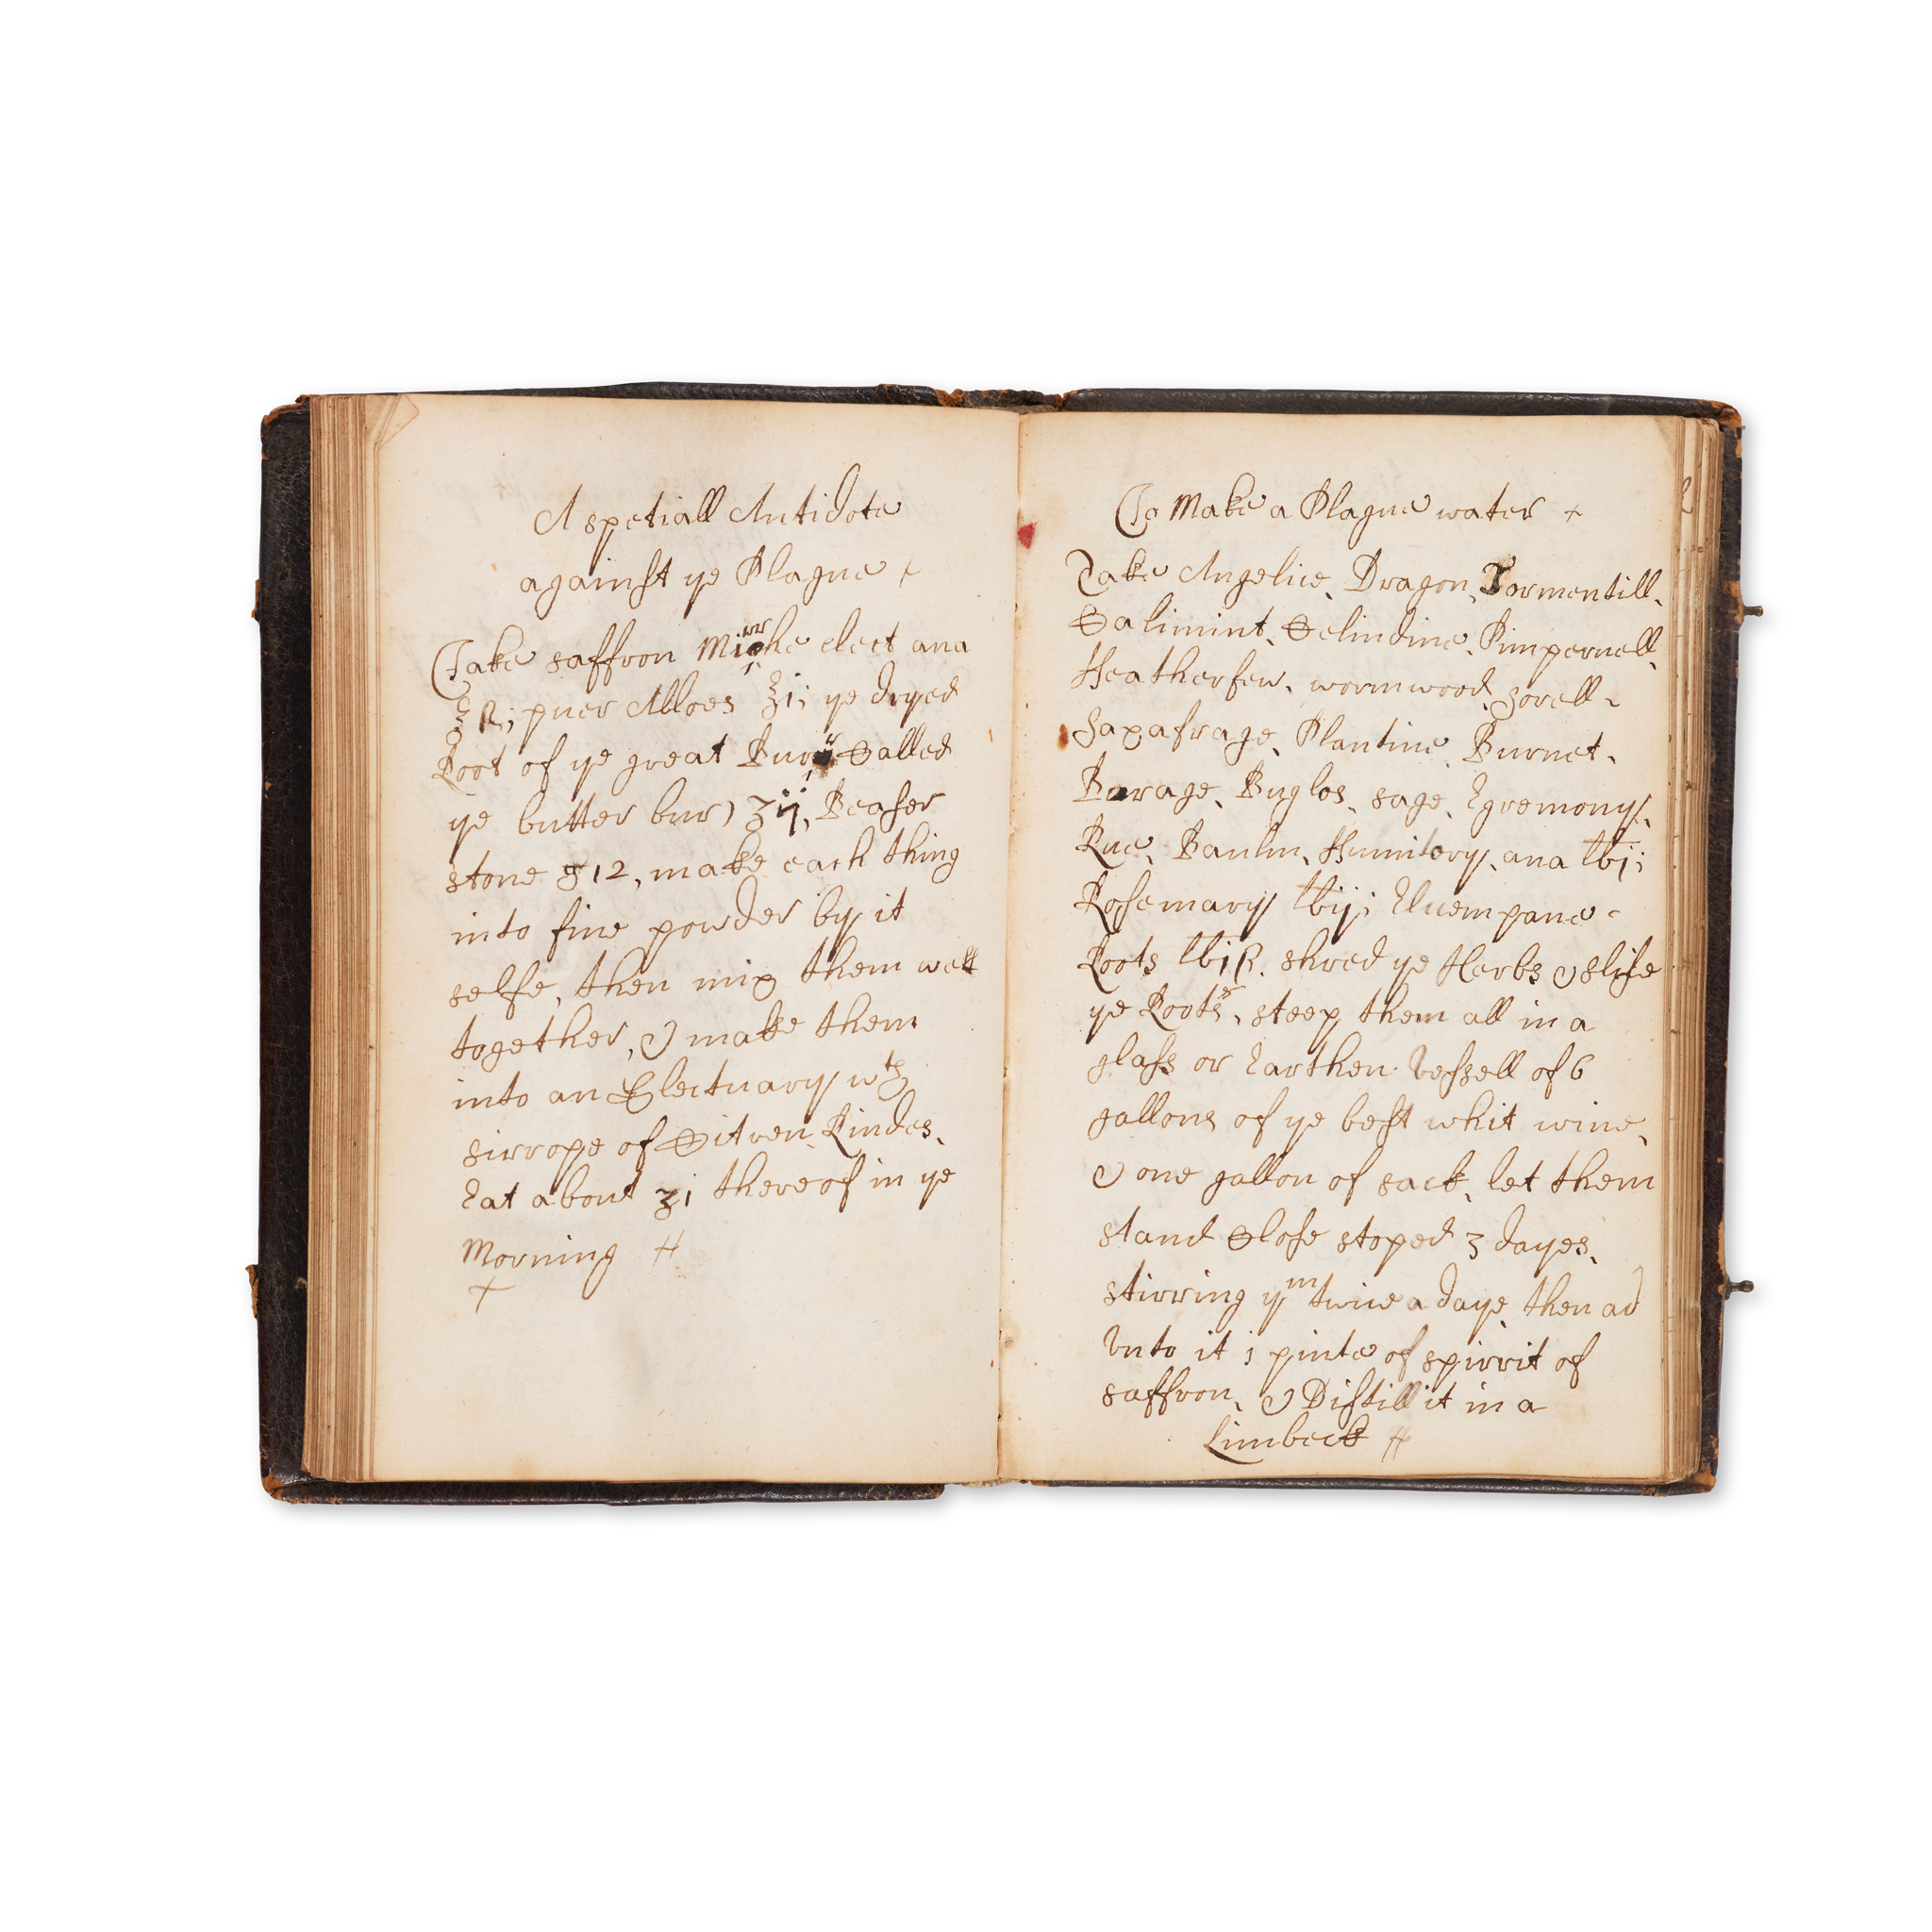 A spetiall Antidote
against ye Plague
Take saffron Mirrhe elect ana
ʒ ß; puer Alloes ʒi; ye dryed
Root of ye great Burr Called
ye butter bur) ʒij, Beaser
stone 12, make each thing
into fine powder by it
selfe, then mix them well
together, & make them
into an Electuary wth
sirrope of Citren Rindes,
Eat about ʒi thereof in ye
Morning
To Make a Plague water
Take Angelice, Dragon, Tormentill,
Calimint, Celindine, Pimpernell,
Featherfew, wormwood, sorell,
Saxafrage, Plantine, Burnet,
Burage, Buglos, sage, Egremony,
Rue, Baulm, Fumitory, ana lbj;
Rosemary lbij; Eluempane
Roots lbjß. shred ye Herbs & slise
ye Roots, steep them all in a
glass or Earthen Vessell of 6
gallons of ye best whit wine,
& one gallon of sack, let them
stand Close stoped 3 dayes,
stirring ym twice a daye, then ad
Vnto it j pinte of spirrit of
saffron, & Distill it in a
Limbeck